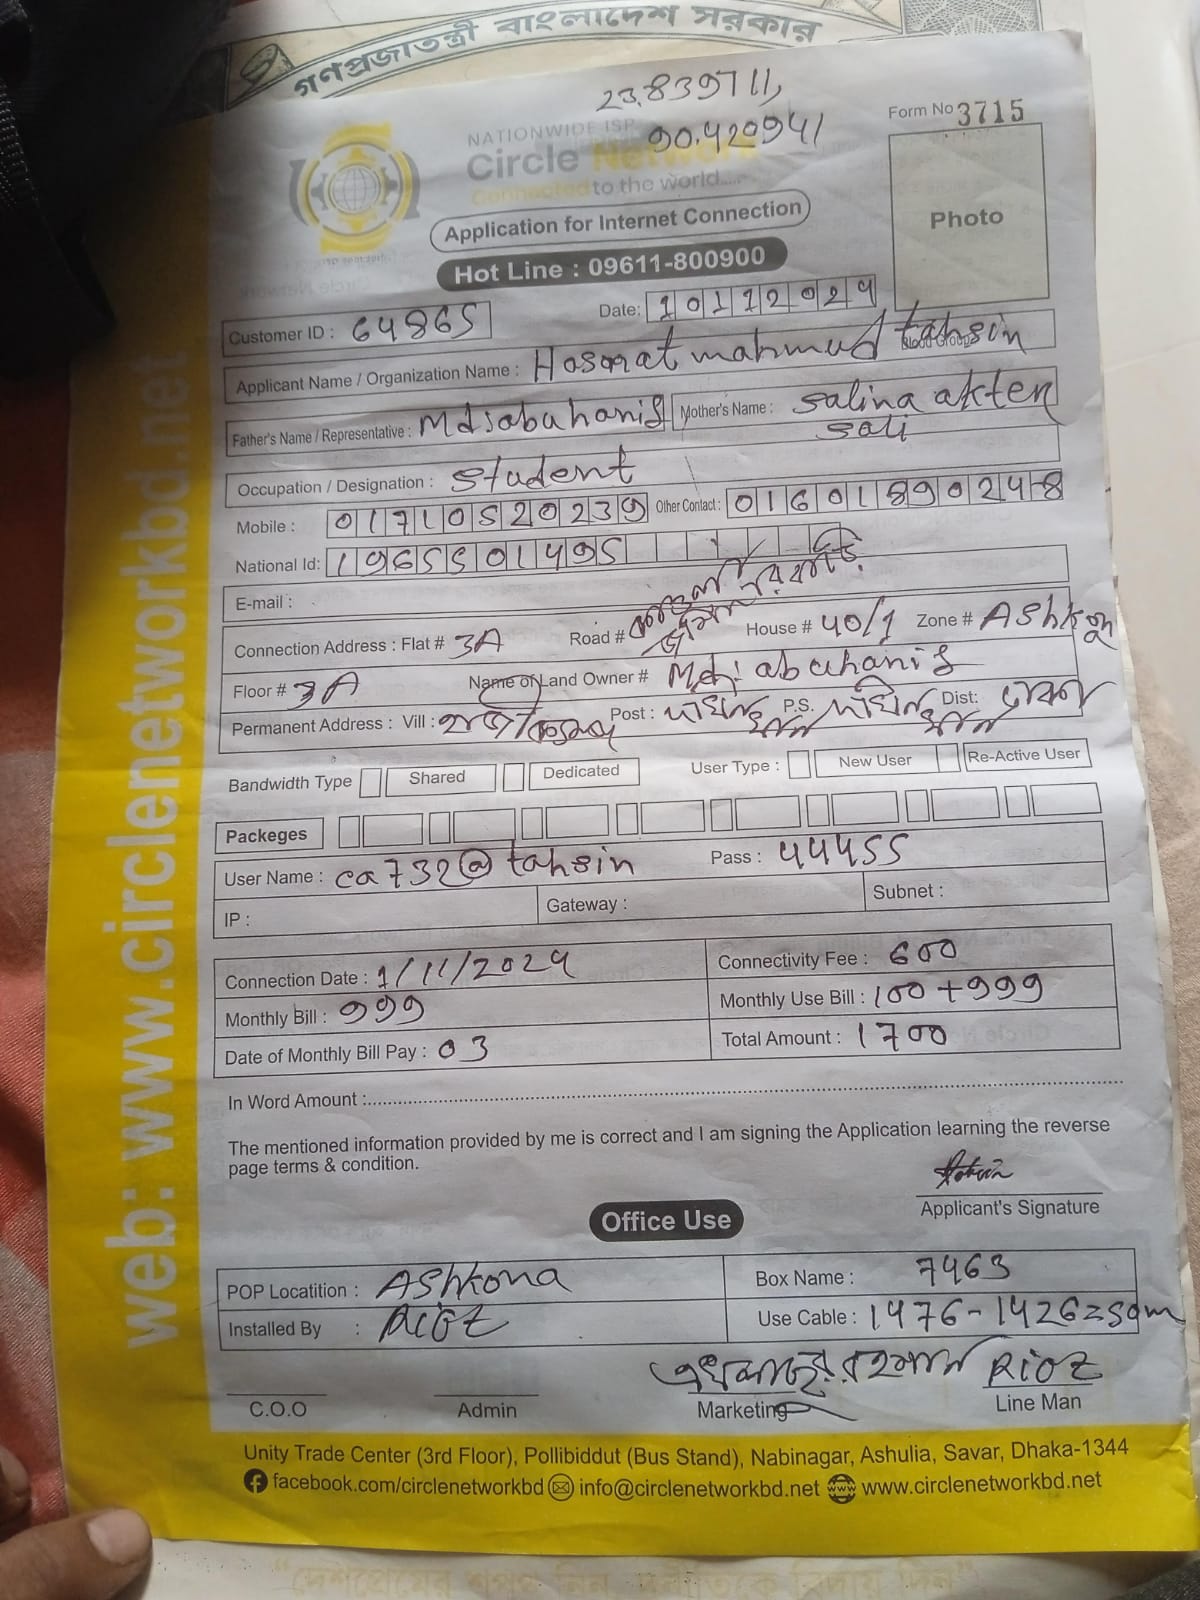 গণপ্রজাতন্ত্রী বাংলাদেশ সরকার
23.839711,
90.420941
Form No 3715
NATIONWIDE ISP
Circle Network
Connected to the world.....
Photo
Application for Internet Connection
Hot Line : 09611-800900
Customer ID : 64865
Date: 10112024
Applicant Name / Organization Name : Hasmat mahmud tahsin
Father's Name / Representative : Md abuhanif Mother's Name : Salina akter
Occupation / Designation : Student
Mobile : 01710520239 Other Contact : 01601890248
National Id: 1965501495
E-mail :
Connection Address : Flat # 3A Road # House # 40/1 Zone # Ashkona
Floor # 3A Name of Land Owner # Md: abuhanif
Permanent Address : Vill : Post : P.S. Dist: ঢাকা
Bandwidth Type Shared Dedicated User Type : New User Re-Active User
Packeges
User Name : ca732@tahsin Pass : 44455
IP : Gateway : Subnet :
Connection Date : 1/11/2024 Connectivity Fee : 600
Monthly Bill : 999 Monthly Use Bill : 100+999
Date of Monthly Bill Pay : 03 Total Amount : 1700
In Word Amount :
The mentioned information provided by me is correct and I am signing the Application learning the reverse
page terms & condition.
Applicant's Signature
Office Use
POP Locatition : Ashkona Box Name : 7463
Installed By : Use Cable : 1476-1426=50m
RiOZ
C.O.O Admin Marketing Line Man
Unity Trade Center (3rd Floor), Pollibiddut (Bus Stand), Nabinagar, Ashulia, Savar, Dhaka-1344
facebook.com/circlenetworkbd info@circlenetworkbd.net www.circlenetworkbd.net
web: www.circlenetworkbd.net